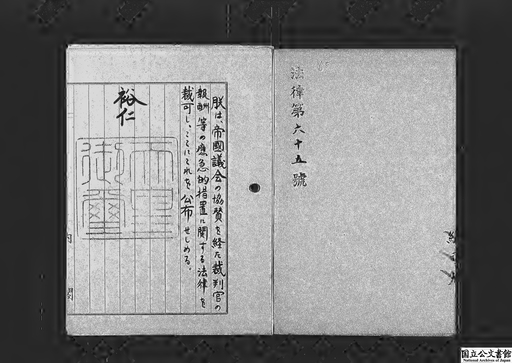 法律第六十五號
朕は、帝國議会の協賛を経た裁判官の
報酬等の應急的措置に関する法律を
裁可し、ここにこれを公布せしめる。
裕仁
天皇
御璽
内
閣
国立公文書館
National Archives of Japan